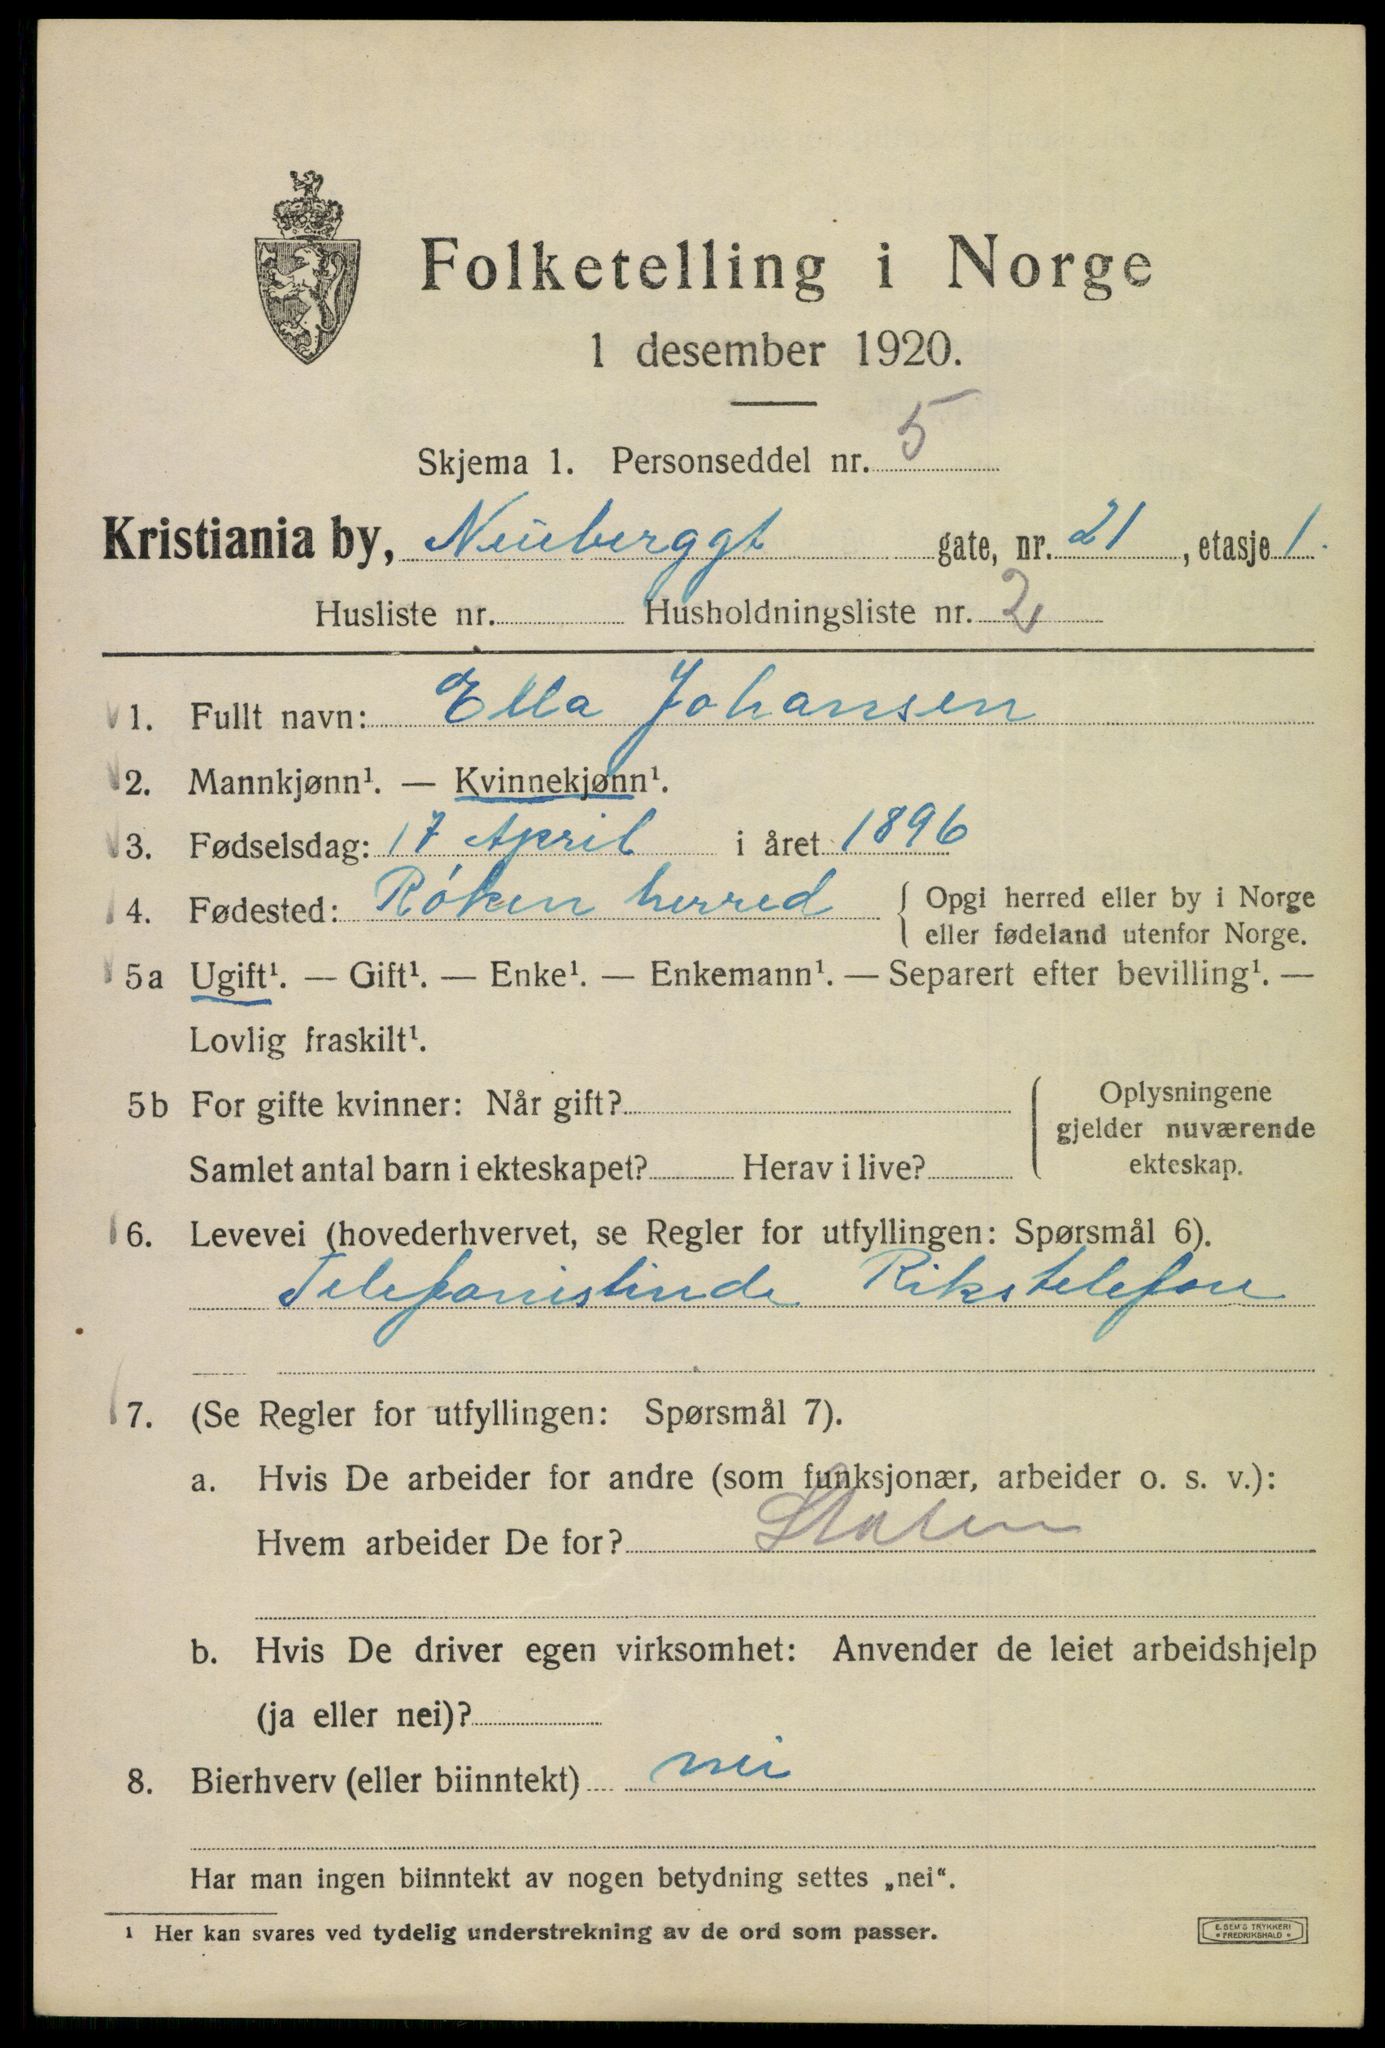 Folketelling i Norge
1 desember 1920.
Skjema 1. Personseddel nr. 5
Kristiania by, Neuberggt gate, nr. 21, etasje 1.
Husliste nr. Husholdningsliste nr. 2
1. Fullt navn: Ella Johansen
2. Mannkjønn¹. — Kvinnekjønn¹.
3. Fødselsdag: 17 April i året 1896
4. Fødested: Røken herred { Opgi herred eller by i Norge
eller fødeland utenfor Norge.
5a Ugift¹. — Gift¹. — Enke¹. — Enkemann¹. — Separert efter bevilling¹. —
Lovlig fraskilt¹.
5b For gifte kvinner: Når gift?
Samlet antal barn i ekteskapet? Herav i live?
Oplysningene
gjelder nuværende
ekteskap.
6. Levevei (hovederhvervet, se Regler for utfyllingen: Spørsmål 6).
Telefonistinde Rikstelefon
7. (Se Regler for utfyllingen: Spørsmål 7).
a. Hvis De arbeider for andre (som funksjonær, arbeider o. s. v.):
Hvem arbeider De for? Staten
b. Hvis De driver egen virksomhet: Anvender de leiet arbeidshjelp
(ja eller nei)?
8. Bierhverv (eller biinntekt) nei
Har man ingen biinntekt av nogen betydning settes „nei“.
¹ Her kan svares ved tydelig understrekning av de ord som passer.
E. SEM'S TRYKKERI
• FREDRIKSHALD •